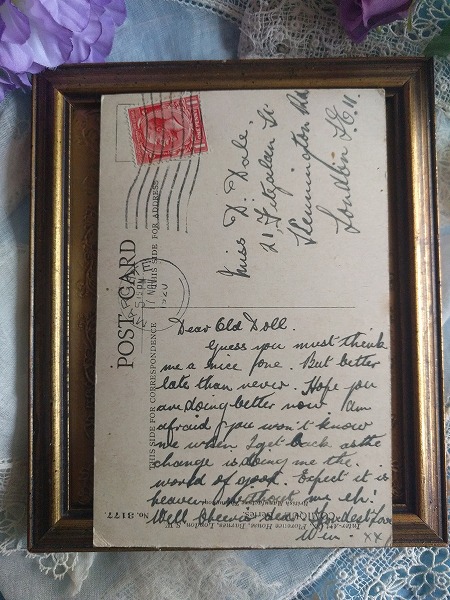 POST CARD
THIS SIDE FOR ADDRESS
THIS SIDE FOR CORRESPONDENCE
5 PM
NOV
1920
Miss D. Dale,
21 Fitzalan St
Kennington Rd
London S.E. 11.
Dear Old Doll.
Guess you must think
me a nice one. But better
late than never. Hope you
are doing better now. I am
afraid you won't know
me when I get back as the
change is doing me the
world of good. Expect it is
heaven without me eh!
Well Cheerio dear, fondest love
Win. xx
Inter-Art Co., Florence House, Barnes, London, S.W.
"COMIQUE" Series.
British Manufacture
No. 3177.